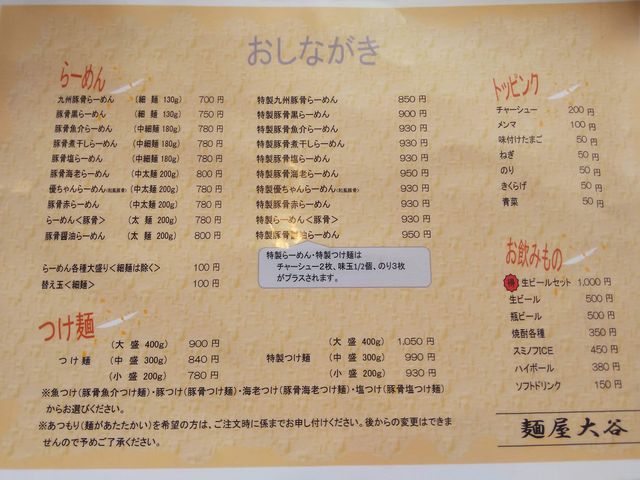 おしながき
らーめん
九州豚骨らーめん (細 麺 130g) 700 円
豚骨黒らーめん (細 麺 130g) 750 円
豚骨魚介らーめん (中細麺 180g) 780 円
豚骨煮干しらーめん (中細麺 180g) 780 円
豚骨塩らーめん (中細麺 180g) 780 円
豚骨海老らーめん (中太麺 200g) 800 円
優ちゃんらーめん(和風豚骨) (中太麺 200g) 780 円
豚骨赤らーめん (中太麺 200g) 780 円
らーめん<豚骨> (太 麺 200g) 780 円
豚骨醤油らーめん (太 麺 200g) 800 円
らーめん各種大盛り<細麺は除く> 100 円
替え玉<細麺> 100 円
特製九州豚骨らーめん 850 円
特製豚骨黒らーめん 900 円
特製豚骨魚介らーめん 930 円
特製豚骨煮干しらーめん 930 円
特製豚骨塩らーめん 930 円
特製豚骨海老らーめん 950 円
特製優ちゃんらーめん(和風豚骨) 930 円
特製豚骨赤らーめん 930 円
特製らーめん<豚骨> 930 円
特製豚骨醤油らーめん 950 円
特製らーめん・特製つけ麺は
チャーシュー2枚、味玉1/2個、のり3枚
がプラスされます。
つけ麺
(大 盛 400g) 900 円
つけ麺 (中 盛 300g) 840 円
(小 盛 200g) 780 円
(大 盛 400g) 1,050 円
特製つけ麺 (中 盛 300g) 990 円
(小 盛 200g) 930 円
※魚つけ(豚骨魚介つけ麺)・豚つけ(豚骨つけ麺)・海老つけ(豚骨海老つけ麺)・塩つけ(豚骨塩つけ麺)
からお選びください。
※あつもり(麺があたたかい)を希望の方は、ご注文時に係までお申し付けください。後からの変更はできま
せんので予めご了承ください。
トッピング
チャーシュー 200 円
メンマ 100 円
味付けたまご 50 円
ねぎ 50 円
のり 50 円
きくらげ 50 円
青菜 50 円
お飲みもの
得 生ビールセット 1,000 円
生ビール 500 円
瓶ビール 500 円
焼酎各種 350 円
スミノフICE 450 円
ハイボール 380 円
ソフトドリンク 150 円
麺屋大谷